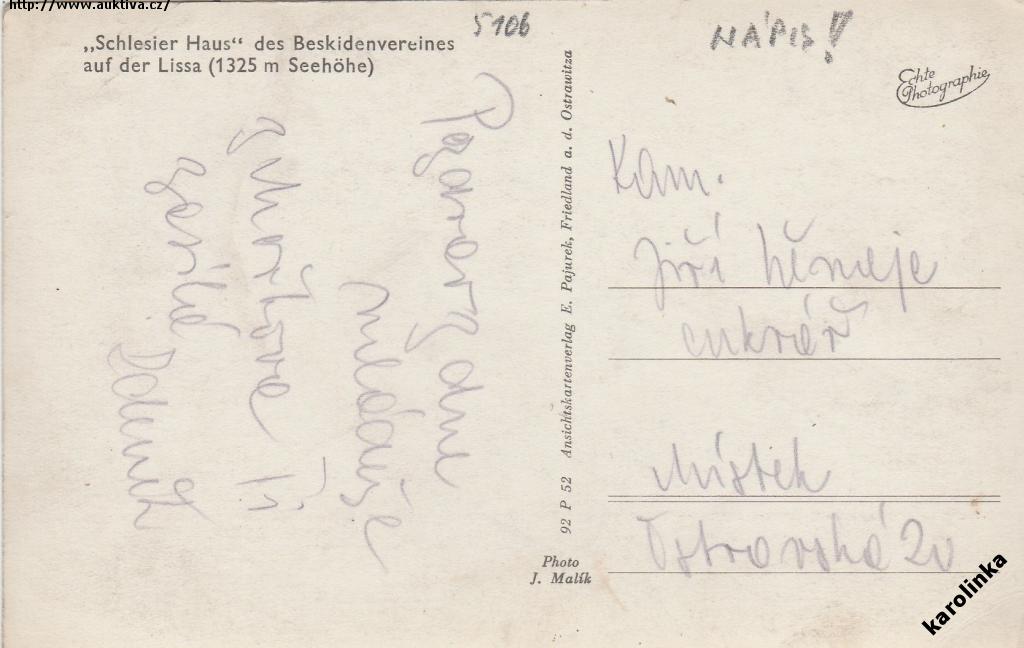 http://www.auktiva.cz/
5106
NÁPIS!
„Schlesier Haus“ des Beskidenvereines
auf der Lissa (1325 m Seehöhe)
Echte
Photographie
Pozdrav z
Ti
zasílá Zdenek
92 P 52 Ansichtskartenverlag E. Pajurek, Friedland a. d. Ostrawitza
Photo
J. Malík
Kam.
Jiří
cukrář
Místek
Ostravská 20
karolinka